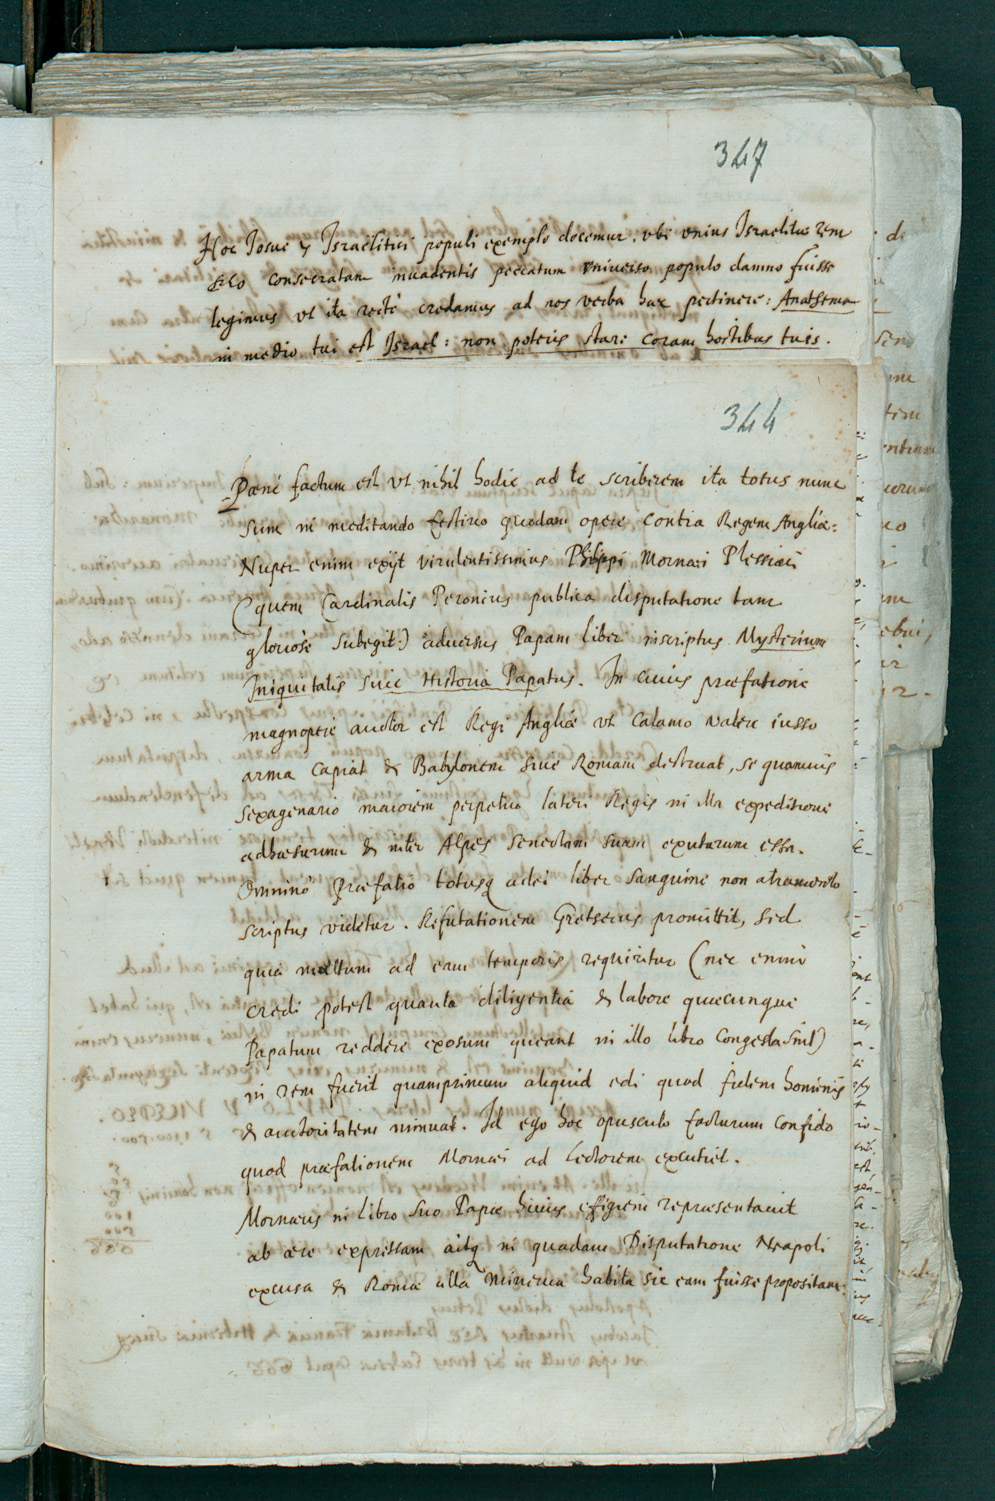 347
Hoc Josue & Israelitici populi exemplo docemur, ubi unius Israelitae rem
Deo consecratam invadentis peccatum universo populo damno fuisse
legimus vt ita rectè credamus ad nos verba haec pertinere: Anathema
in medio tui est Israel: non poteris stare coram hostibus tuis.
344
Paenè factum est vt nihil hodie ad te scriberem ita totus nunc
sum in meditando festivo quodam opere contra Regem Angliae.
Nuper enim exijt virulentissimus Philippi Mornaei Plessiaci
(quem Cardinalis Peronius publica disputatione tam
gloriosè subegit) adversus Papam liber inscriptus Mysterium
Iniquitatis sive Historia Papatus. In cuius praefatione
magnopere auctor est Regi Angliae vt calamo valere iusso
arma capiat & Babylonem sive Romam destruat, se quamvis
sexagenario maiorem perpetuo lateri Regis in illa expeditione
adhaesurum & inter Alpes senectam suam exuturum esse.
Omninò praefatio totusq adeò liber sanguine non atramento
scriptus videtur. Refutationem Gretserus promittit, sed
quia multum ad eam temporis requiritur (nec enim
credi potest quanta diligentia & labore quaecunque
Papatum reddere exosum queant in illo libro congesta sint)
in rem fuerit quamprimum aliquid edi quod fidem hominis
& auctoritatem minuat. Id ego hoc opusculo facturum confido
quod praefationem Mornaei ad Lectorem excutiet.
Mornaeus in libro suo Papae huius effigiem repraesentavit
ab aere expressam aitq in quadam Disputatione Neapoli
excusa & Romae illa Minerva habita sic eam fuisse propositam: